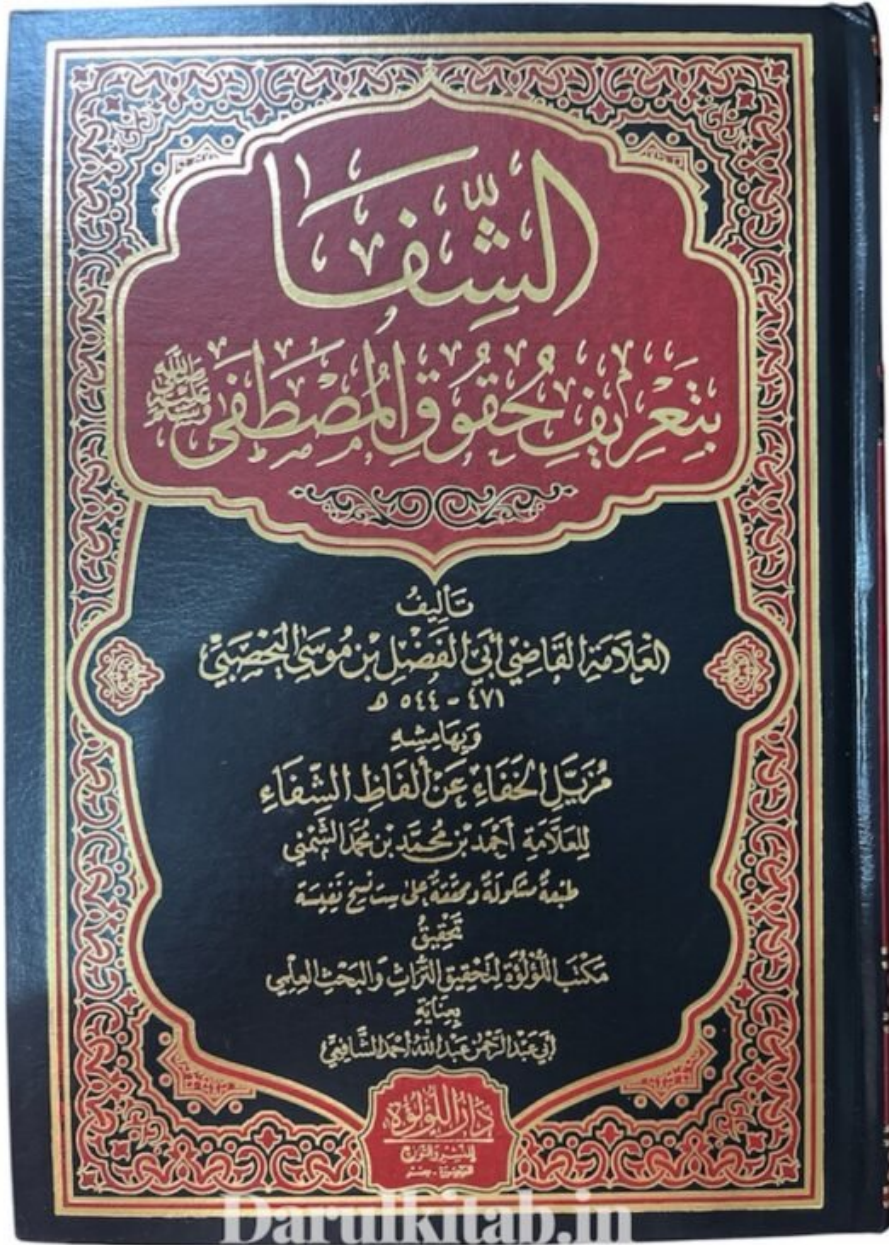 الشِّفَا
بِتَعْرِيفِ حُقُوقِ المُصْطَفَى ﷺ
تَأليفُ
العَلَّامَةِ القَاضِي أَبِي الفَضْلِ بْنِ مُوسَى اليَحْصَبِيِّ
٤٧١ - ٥٤٤ هـ
وَبِهَامِشِهِ
مُزِيَلِ الخَفَاءِ عَنْ أَلْفَاظِ الشِّفَاءِ
لِلعَلَّامَةِ أَحْمَدَ بْنِ مُحَمَّدِ بْنِ مُحَمَّدٍ الشُّمُنِّي
طبعةٌ مشكولةٌ ومحققةٌ على ست نسخ نفيسة
تَحْقِيقُ
مَكْتَبِ اللُّؤْلُؤَةِ لِتَحْقِيقِ التُّرَاثِ وَالبَحْثِ العِلْمِي
بِعِنَايَةِ
أَبِي عَبْدِ الرَّحْمٰنِ عَبْدِ اللّٰهِ أَحْمَدَ الشَّافِعِيِّ
دَارُ اللُّؤْلُؤَةِ
للنشر والتوزيع
المنصورة - مصر
Darulkitab.in